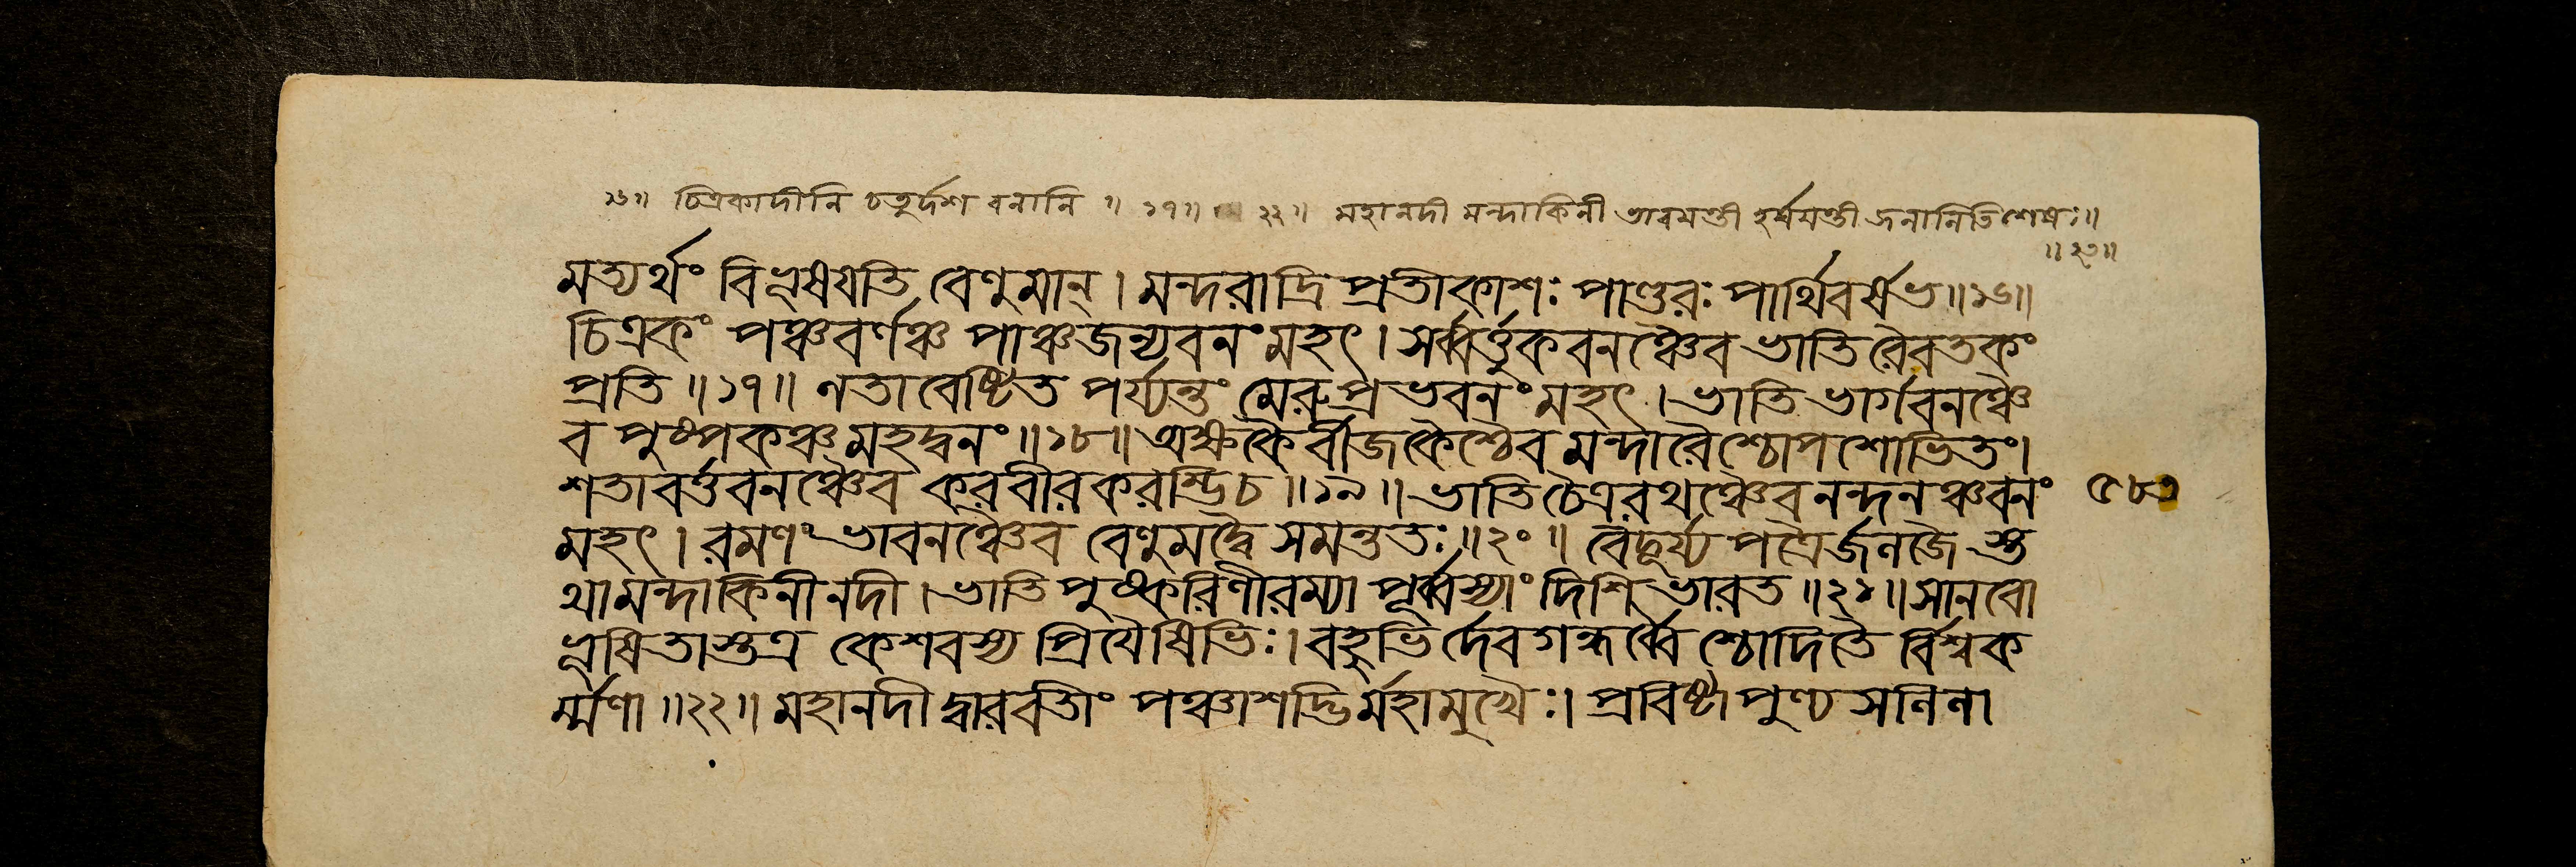 ১৬॥ চিত্রকাদীনি চতুর্দশ বনানি ॥ ১৭॥ ২২॥ মহানদী মন্দাকিনী
॥২৩॥
মত্যর্থং বিভূষযতি বেণুমান্। মন্দরাদ্রি প্রতীকাশঃ পাণ্ডুরঃ পার্থিবর্ষভ॥১৬॥
চিত্রকং পঞ্চবর্ণঞ্চ পাঞ্চজন্যবনং মহৎ। সর্ব্বর্ত্তুকবনঞ্চৈব ভাতি রৈবতকং
প্রতি ॥১৭॥ লতাবেষ্টিত পর্য্যন্তং মেরুপ্রভবনং মহৎ। ভাতি ভার্গবনঞ্চৈ
ব পুষ্পকঞ্চ মহদ্বনং॥১৮॥ অক্ষকৈর্বীজকৈশ্চৈব মন্দারৈশ্চোপশোভিতং।
শতাবর্ত্তবনঞ্চৈব করবীরকরম্ভিচ॥১৯॥ ভাতি চৈত্ররথঞ্চৈব নন্দনঞ্চবনং ৫৮৩
মহৎ। রমণং ভাবনঞ্চৈব বেণুমদ্বৈ সমন্ততঃ॥২০॥ বৈদূর্য্য পত্রৈর্জলজৈ স্ত
থা মন্দাকিনী নদী। ভাতি পুষ্করিণীরম্যা পূর্ব্বস্যাং দিশি ভারত॥২১॥ সানবো
ভূষিতাস্তত্র কেশবস্য প্রিযৈষিভিঃ। বহুভির্দেবগন্ধর্ব্বৈ শ্চোদিতৈ র্বিশ্বক
র্ম্মণা॥২২॥ মহানদী দ্বারবতীং পঞ্চাশদ্ভির্মহামুখৈঃ। প্রবিষ্টা পুণ্য সলিলা